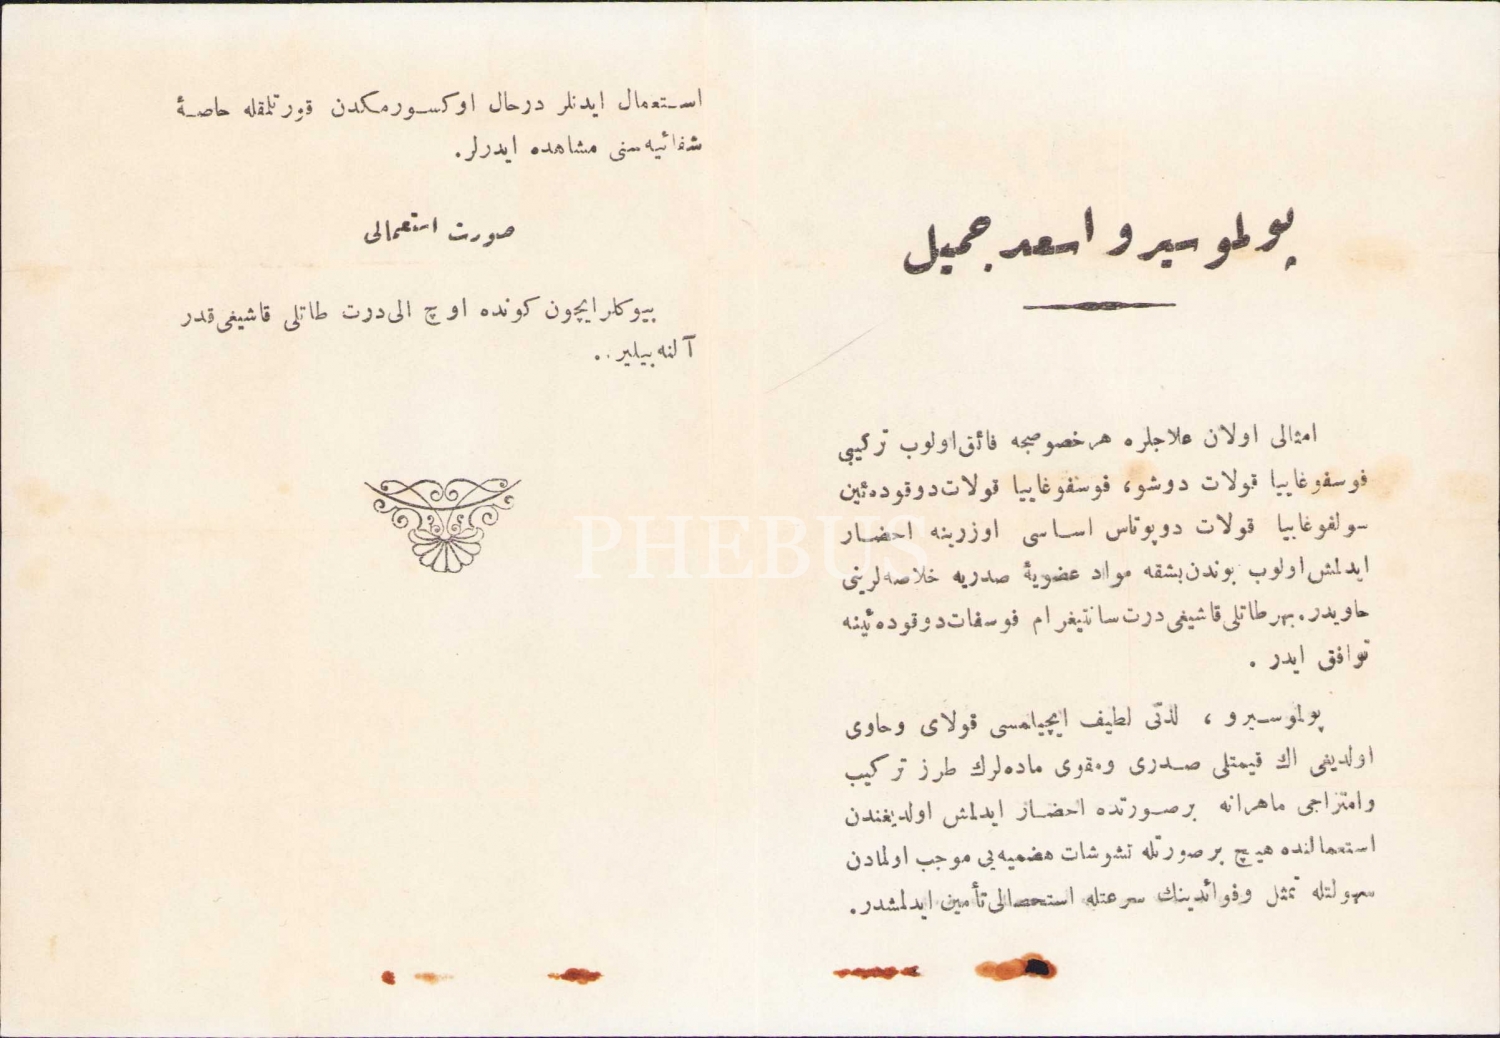 پولموسیرو اسعد جمیل
امثالی اولان علاجلره هرخصوصجه فائق اولوب ترکیبی
فوسفوغاییا قولات دوشو، فوسفوغاییا قولات دوقوده‌ئین
سولفوغاییا قولات دوپوتاس اساسی اوزرینه احضار
ایدلمش اولوب بوندن بشقه مواد عضویهٔ صدریه خلاصه‌لرینی
حاویدر. بهر طاتلی قاشیغی درت سانتیغرام فوسفات دوقوده‌ئینه
توافق ایدر .
پولموسیرو ، لذتی لطیف ایچیلمسی قولای و حاوی
اولدیغی اك قیمتلی صدری و مقوی ماده‌لرك طرز ترکیب
و امتزاجی ماهرانه برصورتده احضار ایدلمش اولدیغندن
استعمالنده هیچ بر صورتله تشوشات هضمیه‌یی موجب اولمادن
سهولتله تمثل و فوائدینك سرعتله استحصالی تأمین ایدلمشدر.
استعمال ایدنلر درحال اوکسورمکدن قورتلمقله حاصهٔ
شفائیه‌سنی مشاهده ایدرلر.
صورت استعمالی
بیوکلر ایچون کونده اوچ الی درت طاتلی قاشیغی قدر
آلنه‌بیلیر..
PHEBUS